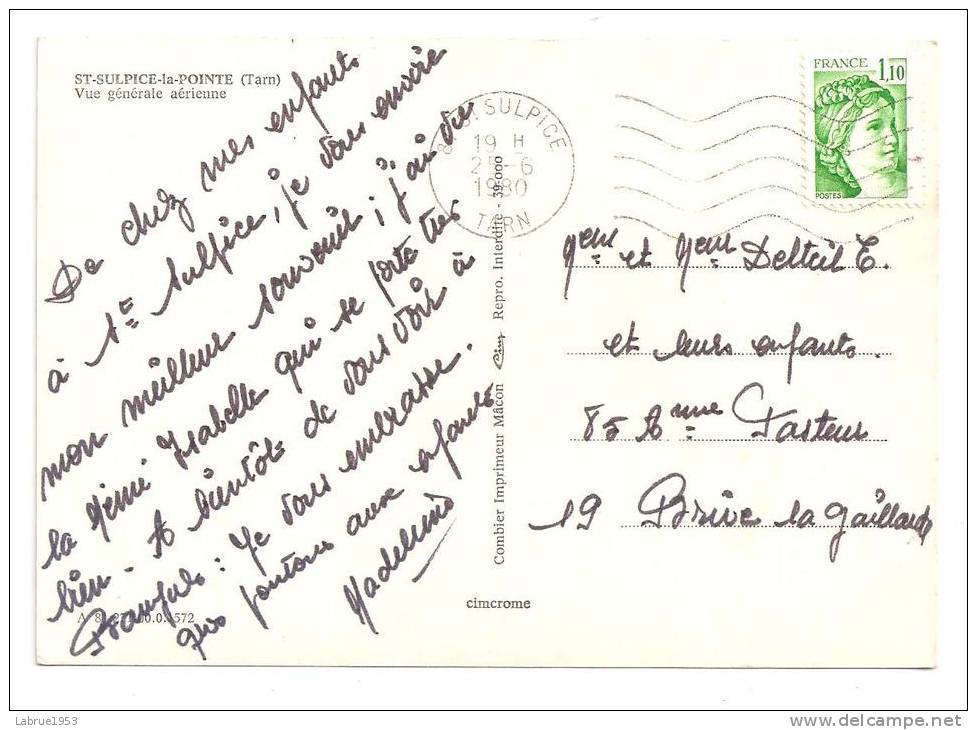 ST-SULPICE-la-POINTE (Tarn)
Vue générale aérienne
De chez mes enfants
à St Sulpice, je vous envoie
mon meilleur souvenir ; j'ai vu
la Isabelle qui se porte très
bien - A bientôt de vous voir à
Je vous embrasse.
gros aux enfants
Madeleine
ST SULPICE
19 H
25-6
1980
TARN
FRANCE 1,10
POSTES
Combier Imprimeur Mâcon Repro. Interdite - 39.000
et Delteil E.
et leurs enfants.
85 Pasteur
19 Brive la Gaillarde
cimcrome
Labrue1953
www.delcampe.net